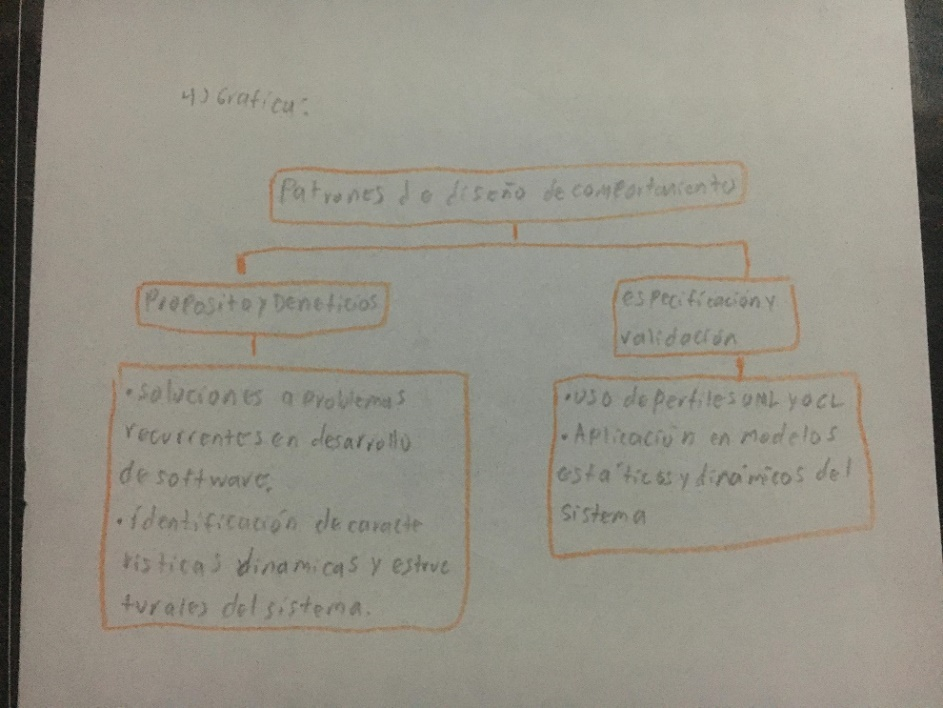 4) Grafica:
Patrones de diseño de comportamiento
Proposito y Beneficios
especificación y
validación
• soluciones a problemas
recurrentes en desarrollo
de software.
• identificación de caracte
risticas dinamicas y estruc
turales del sistema.
• uso de perfiles UML y OCL
• Aplicación en modelos
estáticos y dinámicos del
sistema